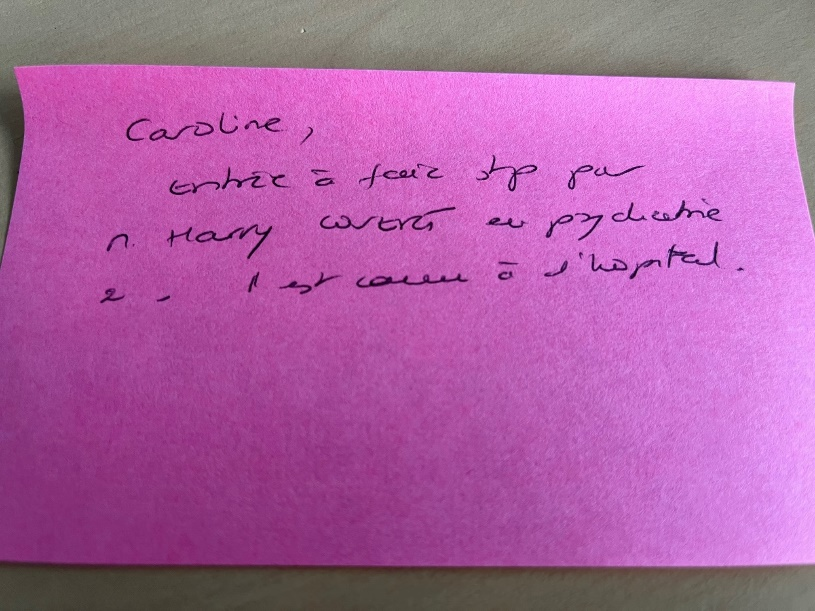 Caroline,
entrée à faire stp pour
M. Harry COVERT en psychiatrie
2. Il est connu à l'hôpital.